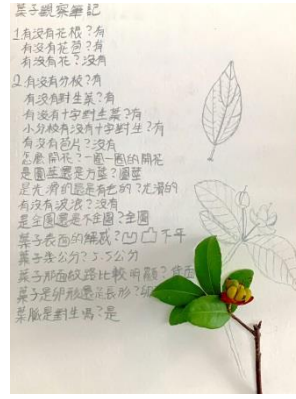 葉子觀察筆記
1.有沒有花梗?有
有沒有花苞?有
有沒有花?沒有
2.有沒有分枝?有
有沒有對生葉?有
有沒有十字對生葉?有
小分枝有沒有十字對生?有
有沒有苞片?沒有
怎麼開花?一圈一圈的開花
是圓莖還是方莖?圓莖
是光滑的還是有毛的?光滑的
有沒有波浪?沒有
是全圓還是不全圓?全圓
葉子表面的
下平
葉子幾公分?5.5公分
葉子那面紋路比較明顯?背面
葉子是卵形還是長形?
葉脈是對生嗎?是